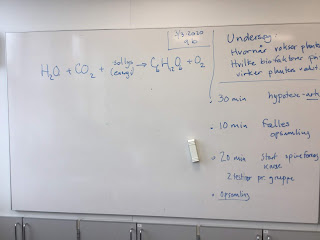 3/3-2020
9.b
H₂O + CO₂ + sollys (energi) → C₆H₁₂O₆ + O₂
Undersøg
Hvornår vokser plante
Hvilke biofaktorer
virker planten
- 30 min hypotese
- 10 min Fælles opsamling
- 20 min Start
2 tester pr. gruppe
- Opsamling